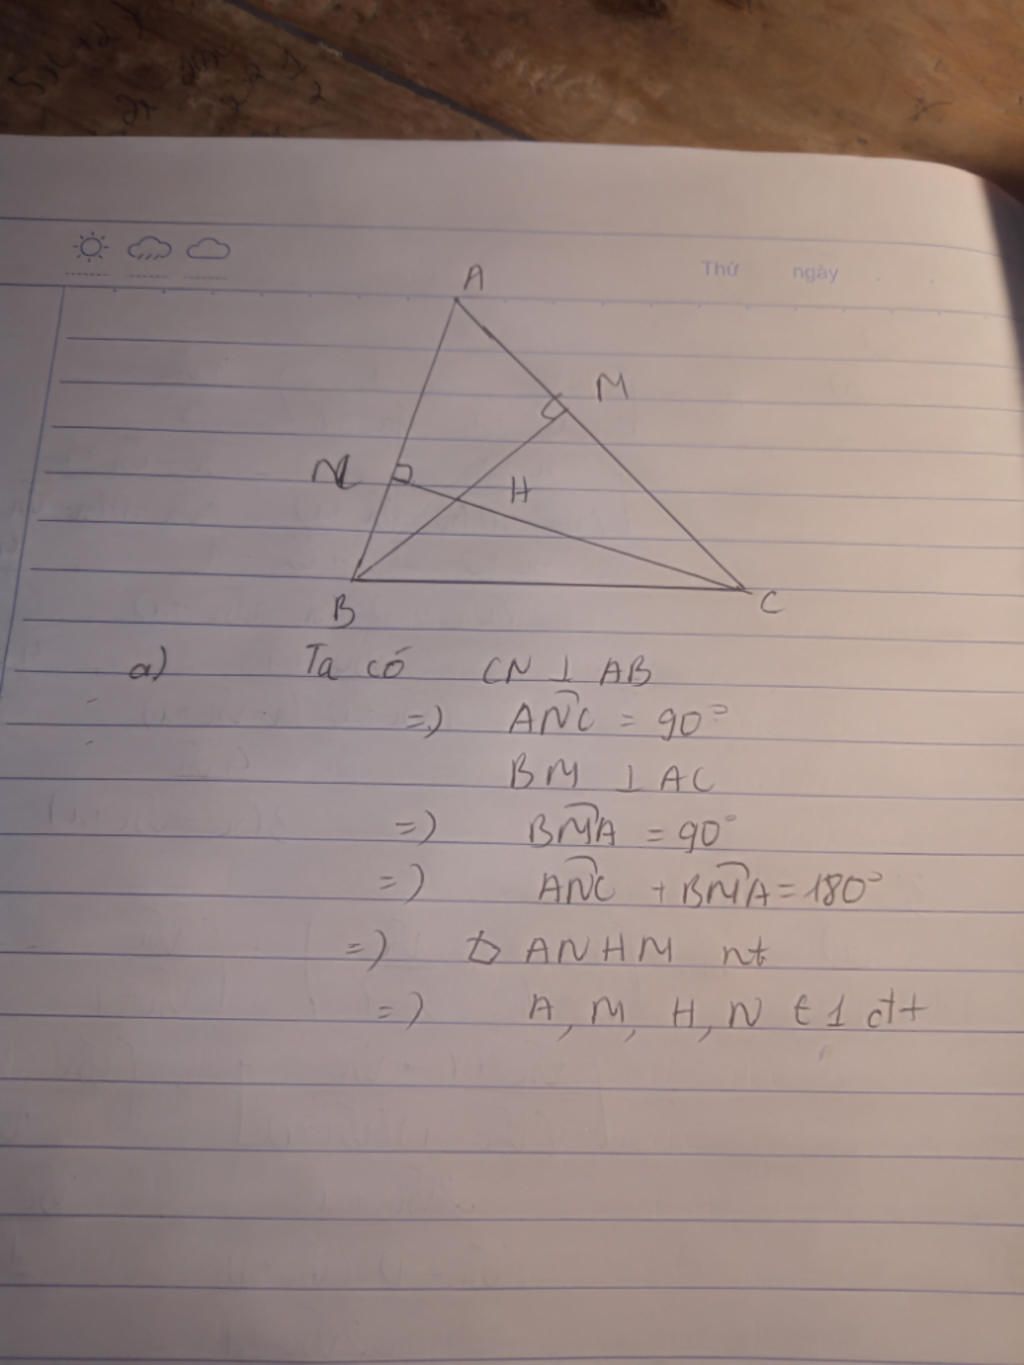 Thứ ngày
A
M
N
H
B
C
a) Ta có CN ⊥ AB
=) ANC = 90°
BM ⊥ AC
=) BMA = 90°
=) ANC + BMA = 180°
=) ANHM nt
=) A, M, H, N € 1 đt